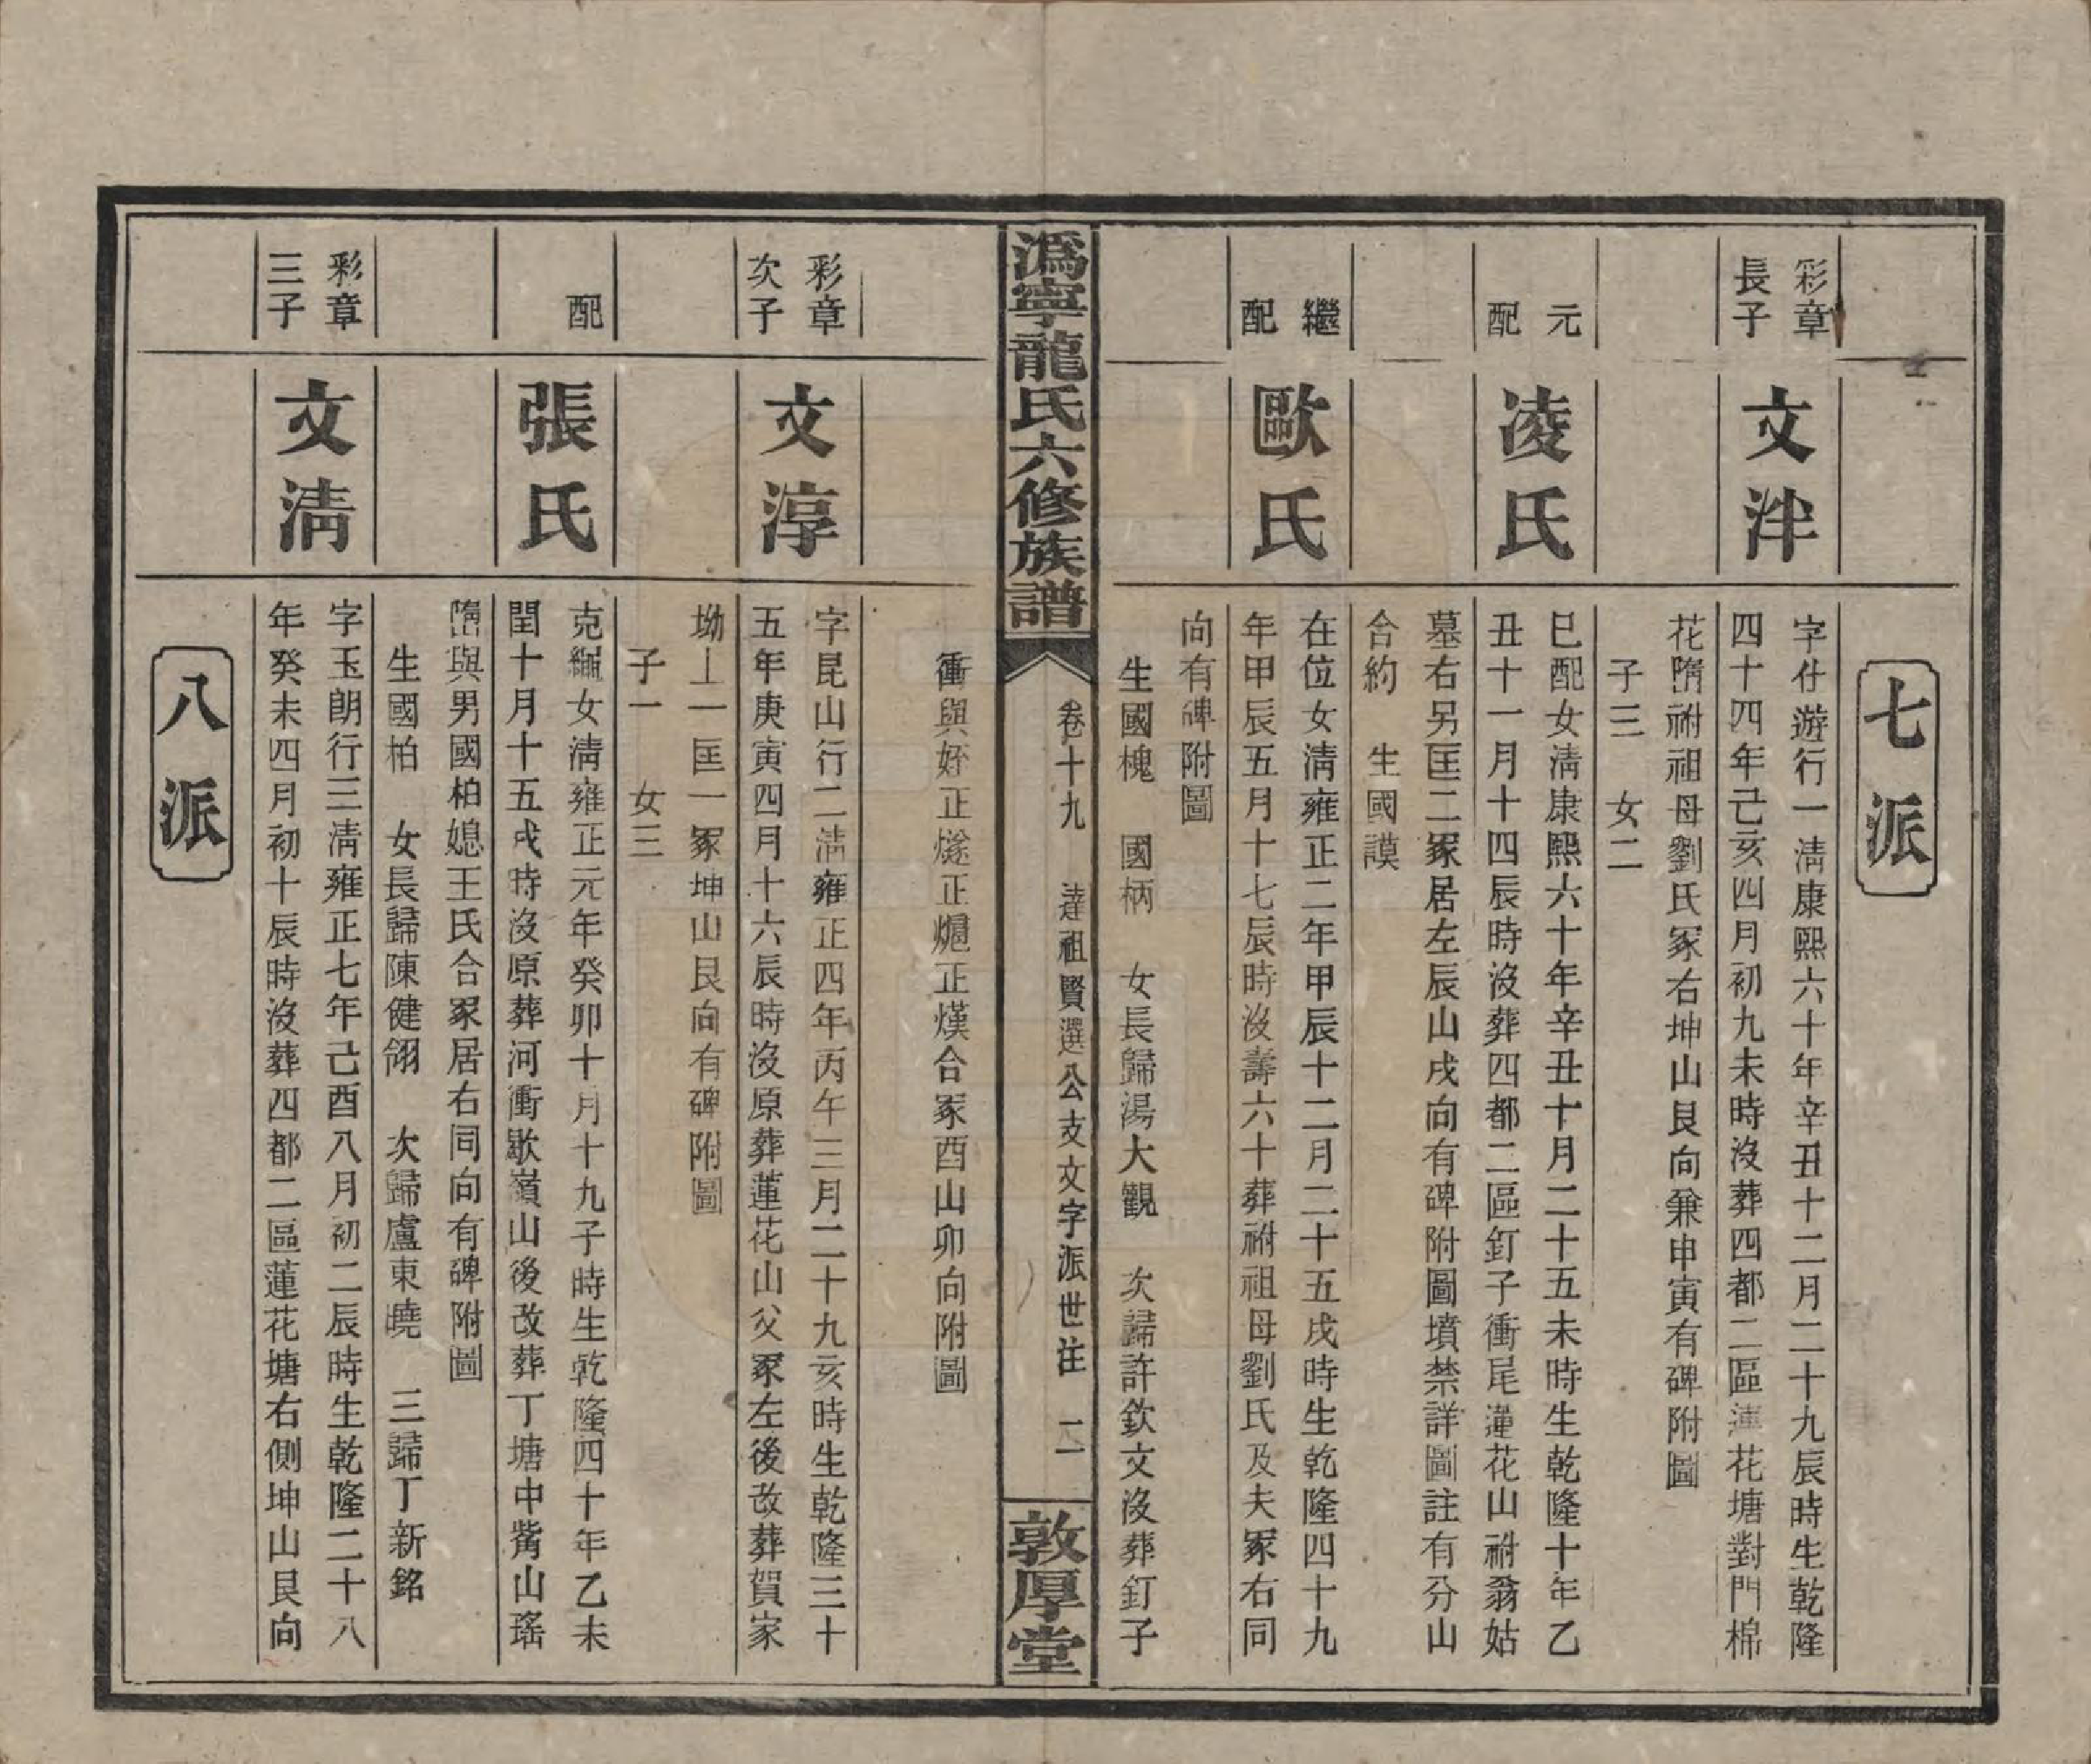 七派
彩章
長子
文泮
字仕遊行一清康熙六十年辛丑十二月二十九辰時生乾隆
四十四年己亥四月初九未時沒葬四都二區蓮花塘對門棉
花𡐓祔祖母劉氏冢右坤山艮向兼申寅有碑附圖
子三　女二
元
配
凌氏
巳配女清康熙六十年辛丑十月二十五未時生乾隆十年乙
丑十一月十四辰時沒葬四都二區釘子衝尾蓮花山祔翁姑
墓右另匡二冢居左辰山戌向有碑附圖墳禁詳圖註有分山
合約　生國謨
繼
配
歐氏
在位女清雍正二年甲辰十二月二十五戌時生乾隆四十九
年甲辰五月十七辰時沒壽六十葬祔祖母劉氏及夫冢右同
向有碑附圖
生國槐　國柄　女長歸湯大觀　次歸許欽文沒葬釘子
溈寧龍氏六修族譜
卷十九　達祖賢選公支文字派世注　二
敦厚堂
衝與姪正燧正熜正熯合冢酉山卯向附圖
彩章
次子
文淳
字昆山行二清雍正四年丙午三月二十九亥時生乾隆三十
五年庚寅四月十六辰時沒原葬蓮花山父冢左後改葬賀家
坳上一匡一冢坤山艮向有碑附圖
子一　女三
配
張氏
克繩女清雍正元年癸卯十月十九子時生乾隆四十年乙未
閏十月十五戌時沒原葬河衝歇嶺山後改葬丁塘中觜山瑤
𡐓與男國柏媳王氏合冢居右同向有碑附圖
生國柏　女長歸陳健翎　次歸盧東曉　三歸丁新銘
彩章
三子
文清
字玉朗行三清雍正七年己酉八月初二辰時生乾隆二十八
年癸未四月初十辰時沒葬四都二區蓮花塘右側坤山艮向
八派